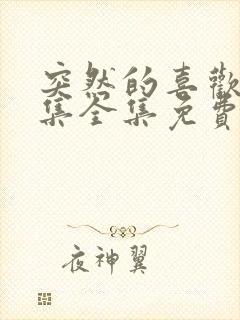 突然的喜歡
集全集免費
夜神翼